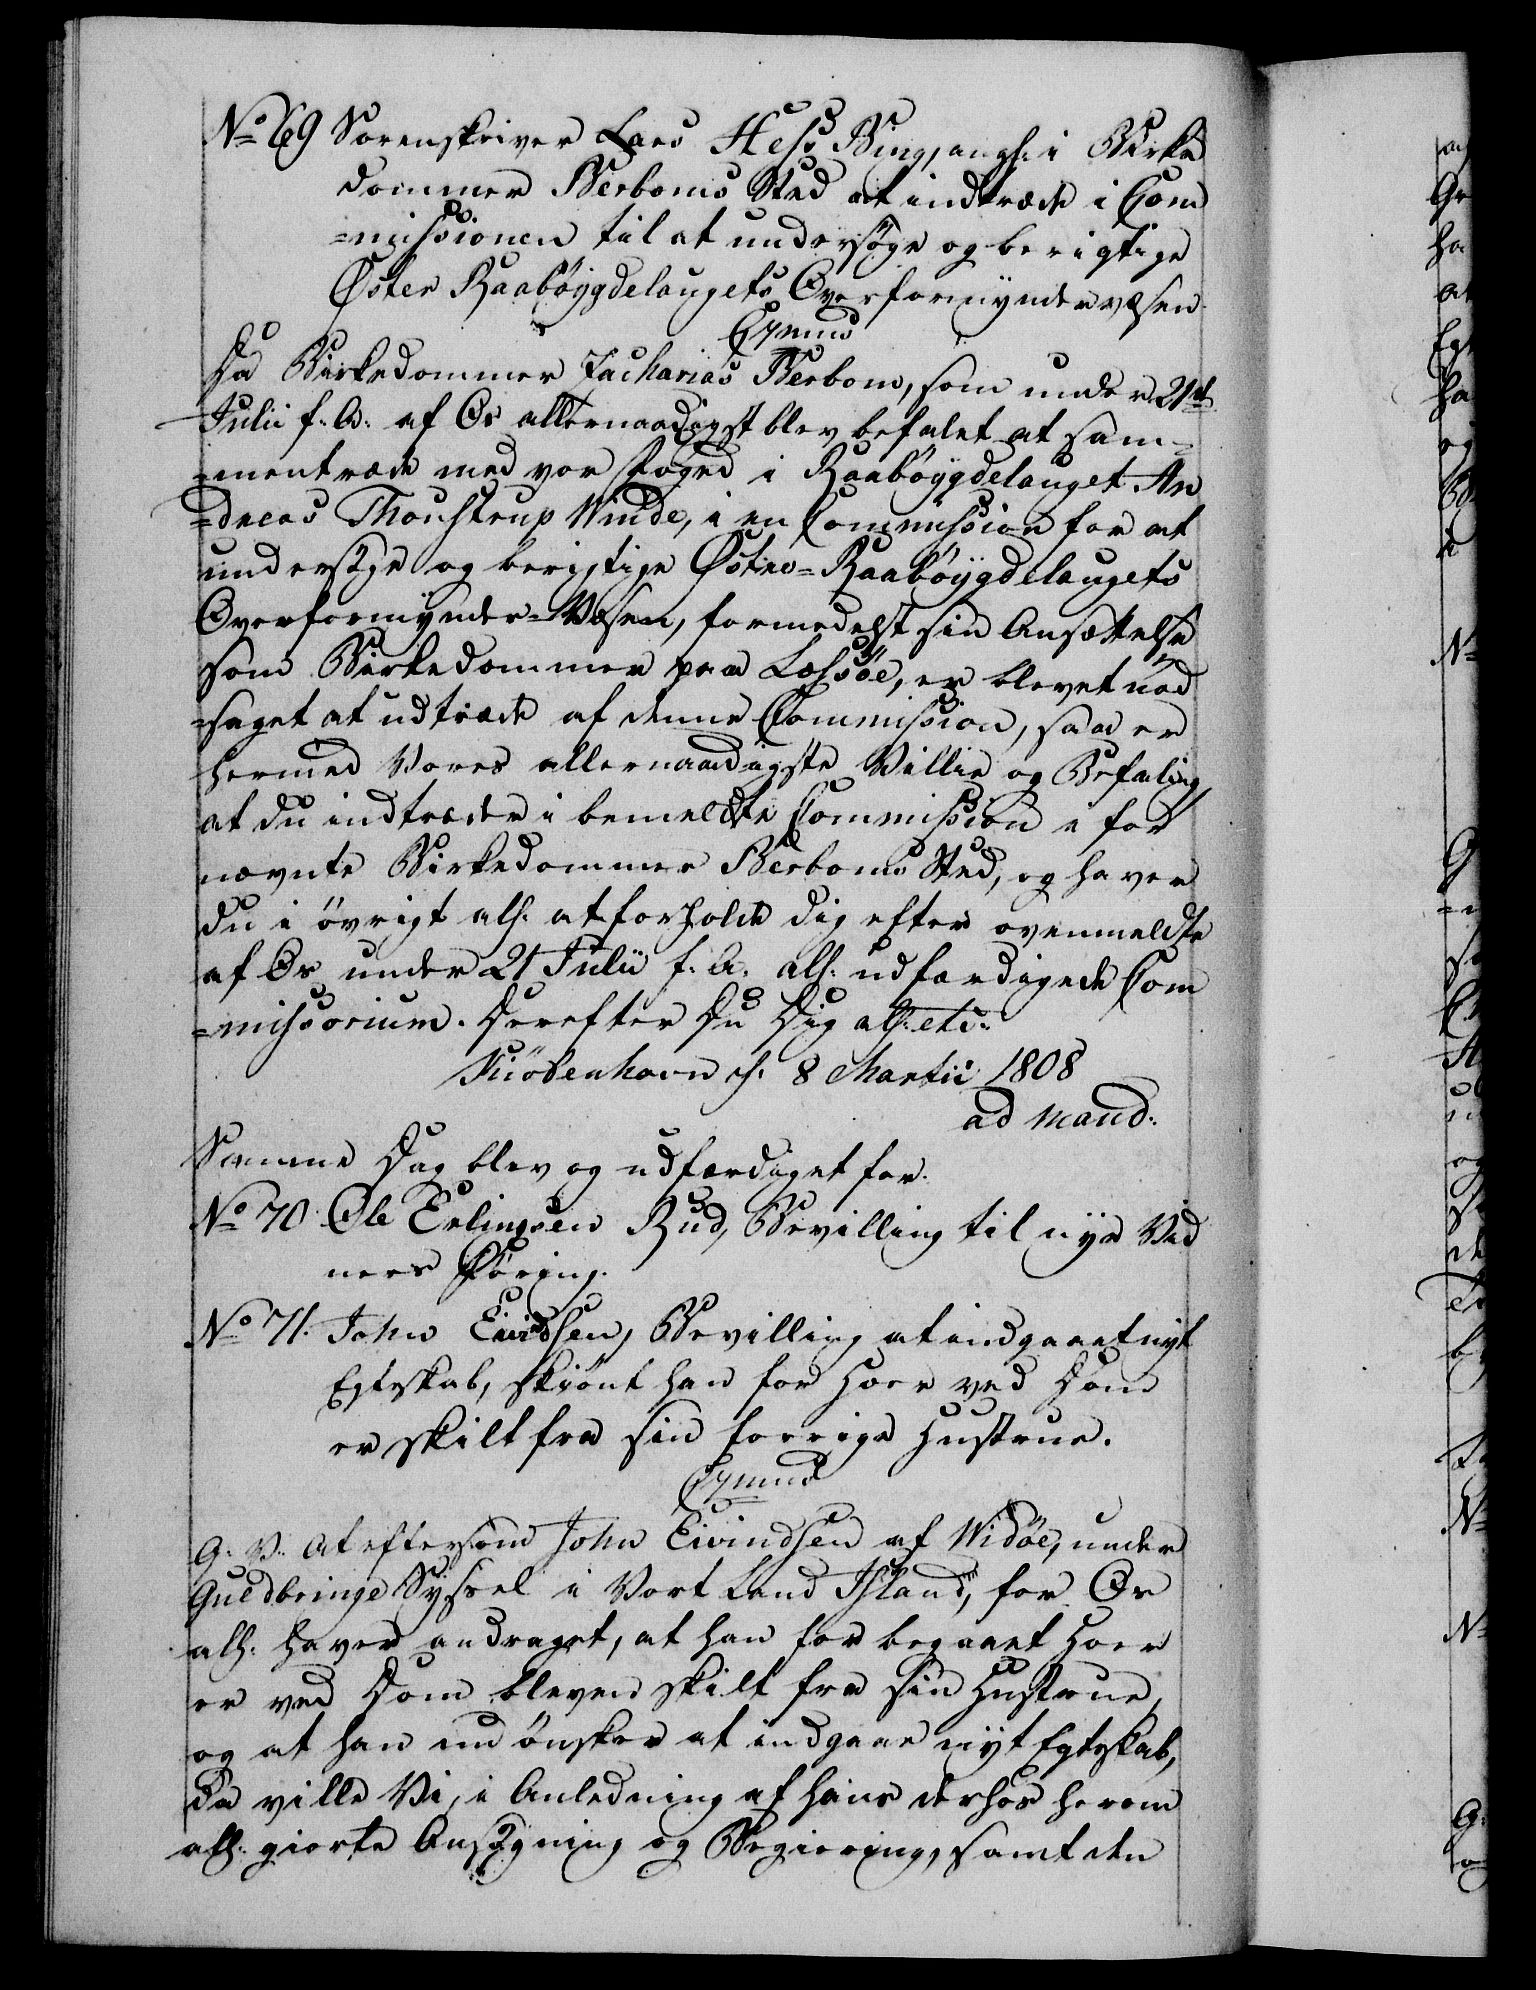 No 69 Sorenskriver Lars Hess Bing, angl: i Birke
dommer Berboms Sted at indtræde i Com
=missionen til at undersøge og berigtige
Øster Raabøygdelaugets Overformyndervæsen.
Da Birkedommer Zacharias Berbom, som under 21de
Julii f: A: af Os allernaadigst blev befalet at sam=
=mentræde med vor Foged i Raabøygdelauget An
=dreas Thoustrup Winde, i en Commission for at
undersøge og berigtige Østre=Raabøygdelaugets
Overformynder=Væsen, formedelst sin Ansættelse
som Birkedommer paa Læssøe, er blevet nød
=saget at udtræde af denne Commission, saa er
hermed Vores allernaadigste Villie og Befaling,
at du indtræder i bemeldte Commission i for
nævnte Birkedommer Berboms Sted, og haver
du i øvrigt all: at forholde dig efter ovenmeldte
af Os under 21 Julii f: A: all: udfærdigede Com
=missorium. Derefter Du Dig all: etc:
Kiøbenhavn d: 8 Martii 1808
ad mand:
Samme Dag blev og udfærdiget for.
No 70 Ole Erlingsen Rud, Bevilling til nye Vid
ners Føring.
No 71. John Eivindsen, Bevilling at indgaae nyt
Egteskab, skiønt han for Hoer ved Dom
er skilt fra sin forrige Hustrue.
G: V: at eftersom John Eivindsen af Widøe, under
Guldbringe Syssel i Vort Land Island, for Os
all: haver andraget, at han for begaaet Hoer
er ved Dom bleven skilt fra sin Hustrue,
og at han nu ønsker at indgaae nyt Egteskab,
da ville Vi, i Anledning af hans derhos herom
all: giorte Ansøgning og Begiering, samt den